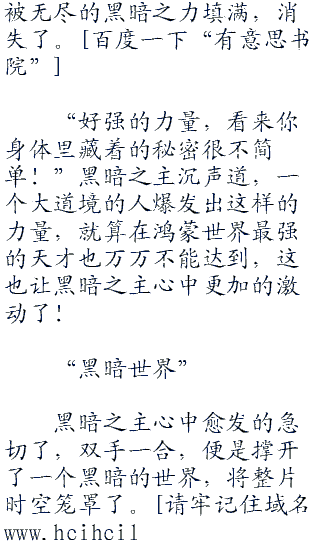 被无尽的黑暗之力填满，消
失了。[百度一下“有意思书
院”]
“好强的力量，看来你
身体里藏着的秘密很不简
单！”黑暗之主沉声道，一
个大道境的人爆发出这样的
力量，就算在鸿蒙世界最强
的天才也万万不能达到，这
也让黑暗之主心中更加的激
动了！
“黑暗世界”
黑暗之主心中愈发的急
切了，双手一合，便是撑开
了一个黑暗的世界，将整片
时空笼罩了。[请牢记住域名
www.hcihcil